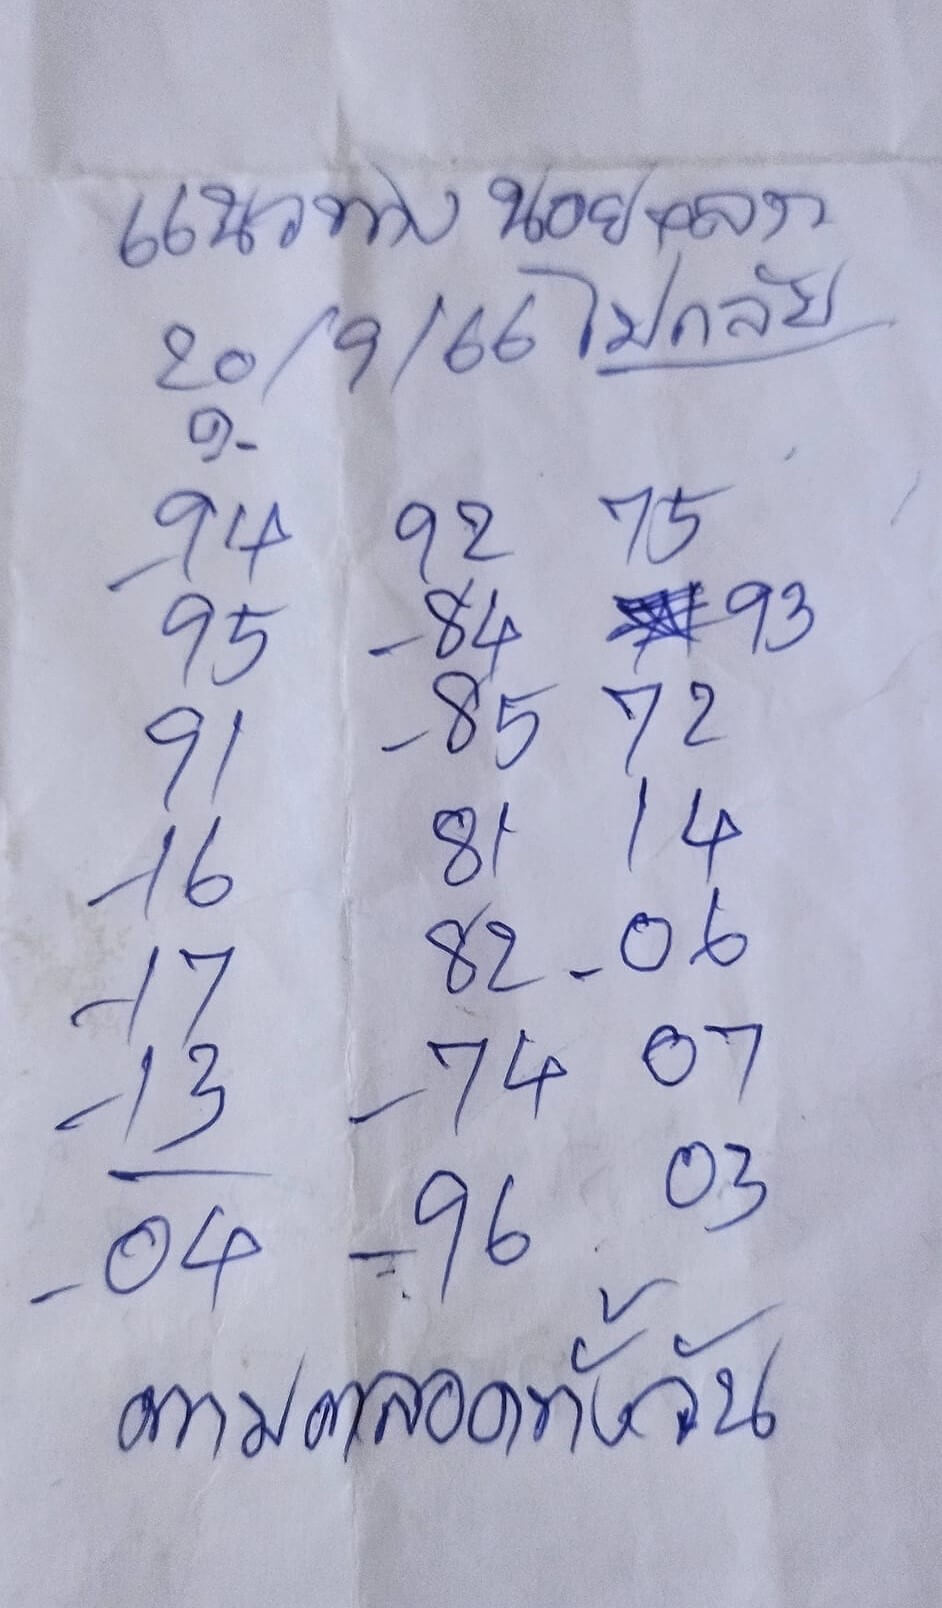 แนวทาง น้อย
20/9/66 ไม่กลับ
-94 92 75
95 -84 93
91 -85 72
-16 81 14
-17 82 -06
-13 -74 07
-04 -96 03
ตามตลอดทั้งวัน